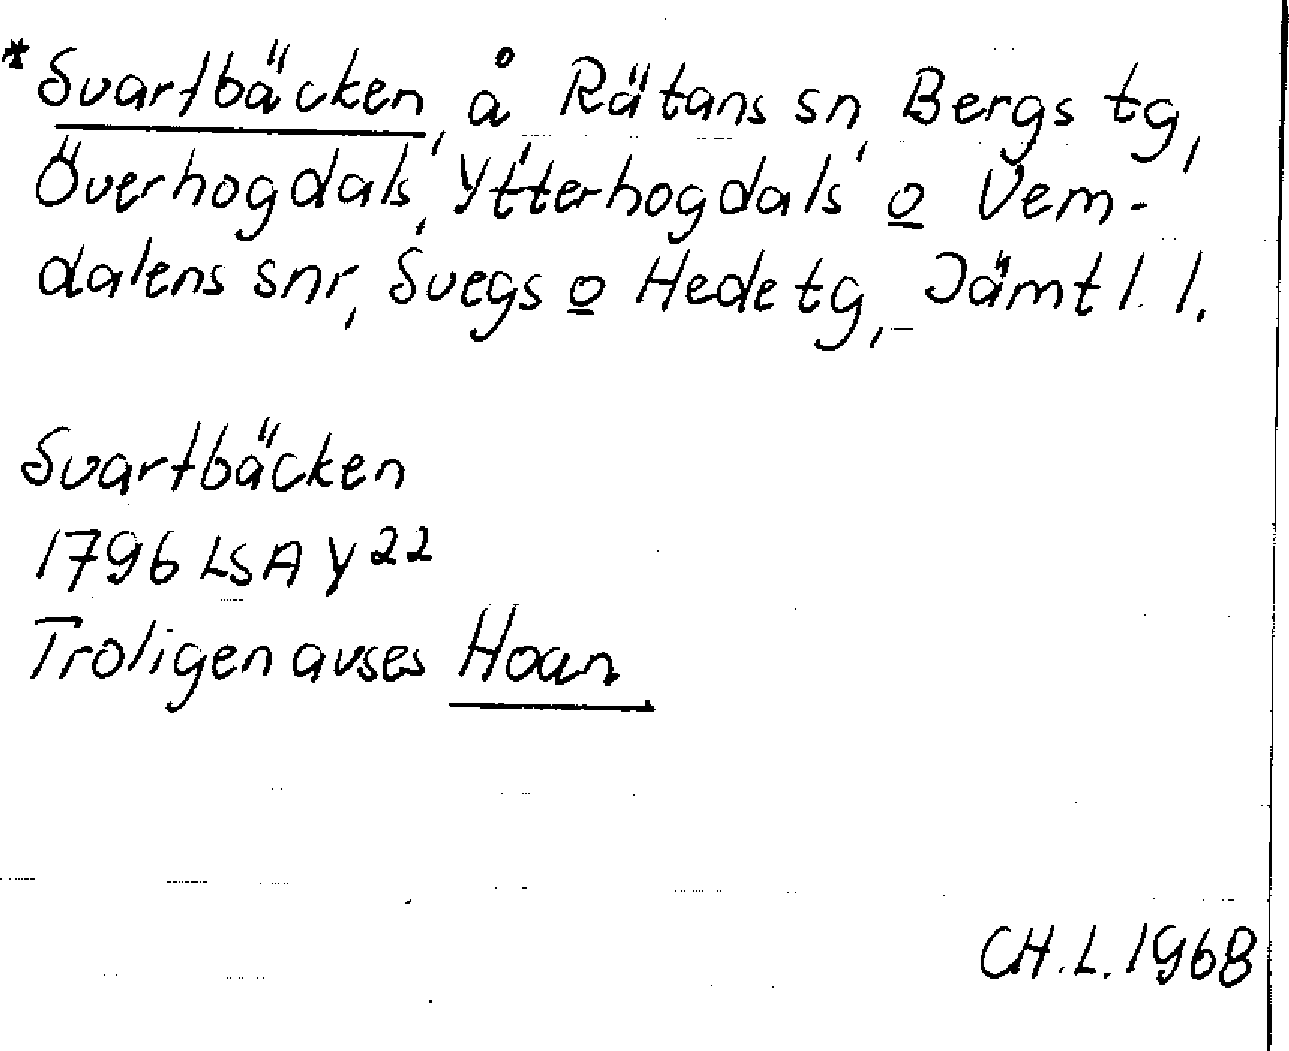 *Svartbäcken, å, Rätans sn, Bergs tg,
Överhogdals, Ytterhogdals o Vem-
dalens snr, Svegs o Hede tg, Jämtl. l.
Svartbäcken
1796 LSA Y 22
Troligen avses Hoan
CH.L. 1968